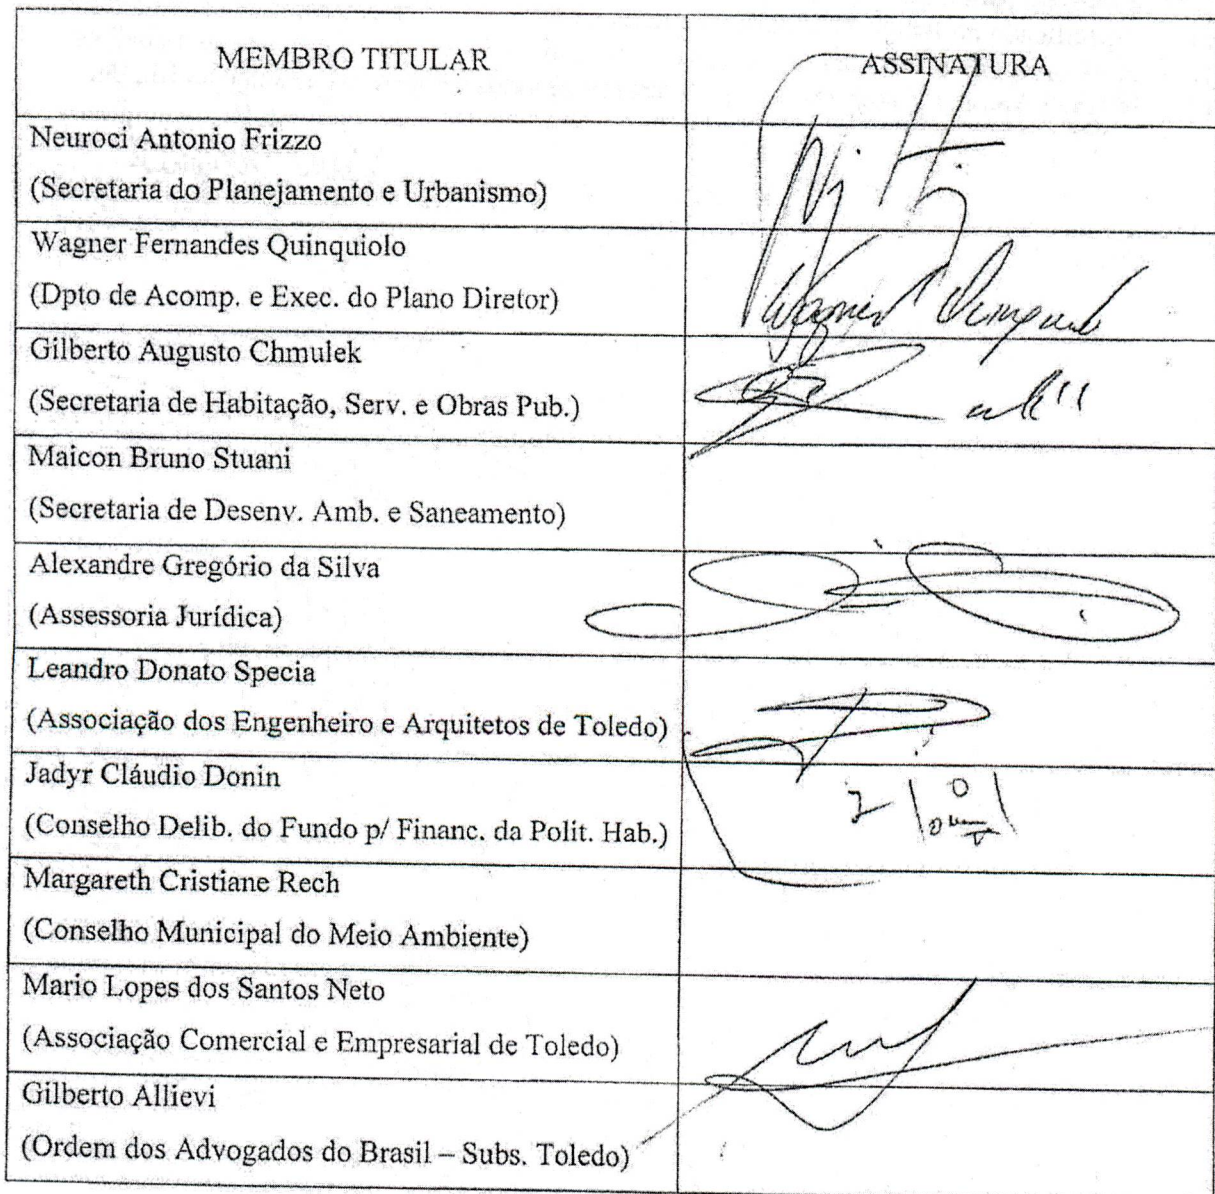 MEMBRO TITULAR
ASSINATURA
Neuroci Antonio Frizzo
(Secretaria do Planejamento e Urbanismo)
Wagner Fernandes Quinquiolo
(Dpto de Acomp. e Exec. do Plano Diretor)
Wagner
Gilberto Augusto Chmulek
(Secretaria de Habitação, Serv. e Obras Pub.)
Maicon Bruno Stuani
(Secretaria de Desenv. Amb. e Saneamento)
Alexandre Gregório da Silva
(Assessoria Jurídica)
Leandro Donato Specia
(Associação dos Engenheiro e Arquitetos de Toledo)
Jadyr Cláudio Donin
(Conselho Delib. do Fundo p/ Financ. da Polit. Hab.)
Margareth Cristiane Rech
(Conselho Municipal do Meio Ambiente)
Mario Lopes dos Santos Neto
(Associação Comercial e Empresarial de Toledo)
Gilberto Allievi
(Ordem dos Advogados do Brasil – Subs. Toledo)